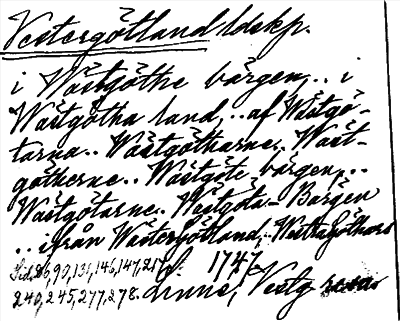 Vestergötland ldskp.
i Wästgöthe bärgen,.. i
Wästgötha land,.. af Wästgö-
tarna.. Wästgötharne.. Wäst-
götherne.. Wästgöte bärgen,..
Wästgötarne.. Westgöta-Bärgen
.. ifrån Wästergötland,. Westragöthers
Sid. 26,90,131,146,147,217, f. 1747.
240,245,277,278. Linné, Vestg resa